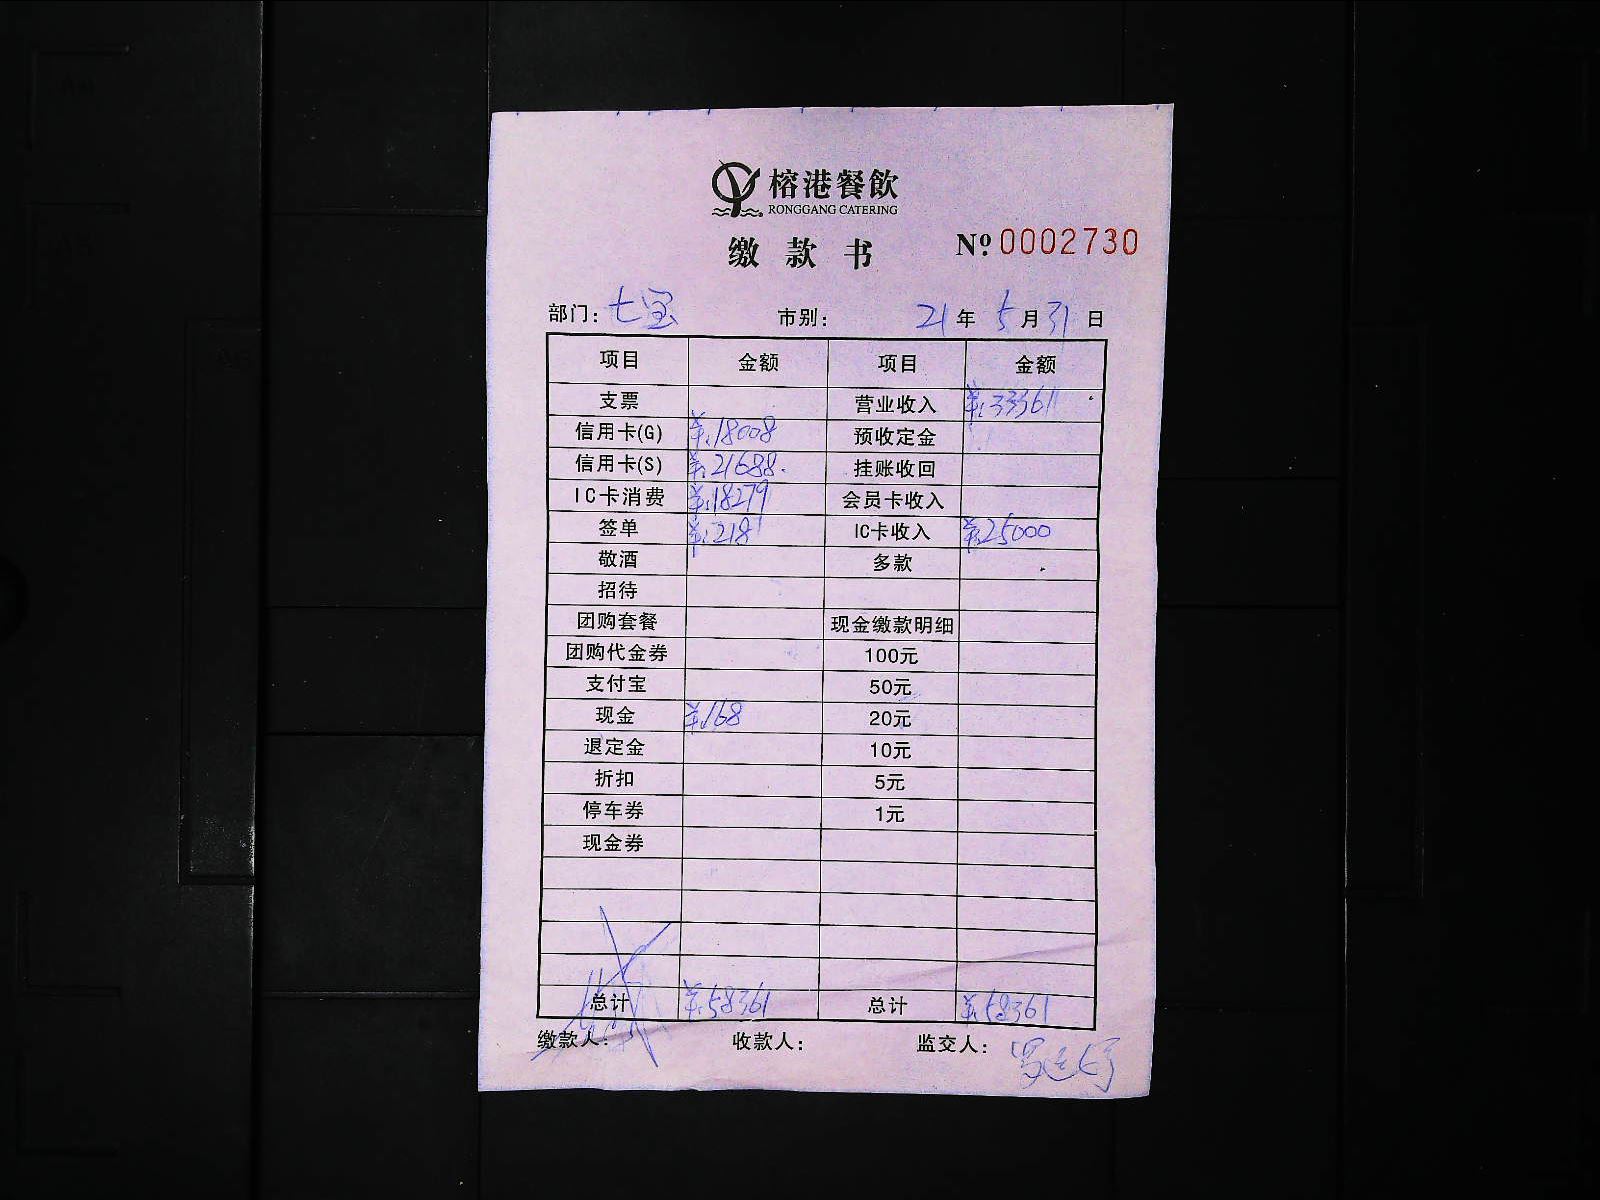 榕港餐飲
RONGGANG CATERING
缴款书 Nº 0002730
部门: 七宝 市别: 21年 5月31日
项目 金额 项目 金额
支票 营业收入 ¥:33361
信用卡(G) ¥:18008 预收定金
信用卡(S) ¥:21688. 挂账收回
IC卡消费 ¥:18279 会员卡收入
签单 ¥:218 IC卡收入 ¥:25000
敬酒 多款
招待
团购套餐 现金缴款明细
团购代金券 100元
支付宝 50元
现金 ¥:168 20元
退定金 10元
折扣 5元
停车券 1元
现金券
总计 ¥:58361 总计 ¥:58361
缴款人: 收款人: 监交人: